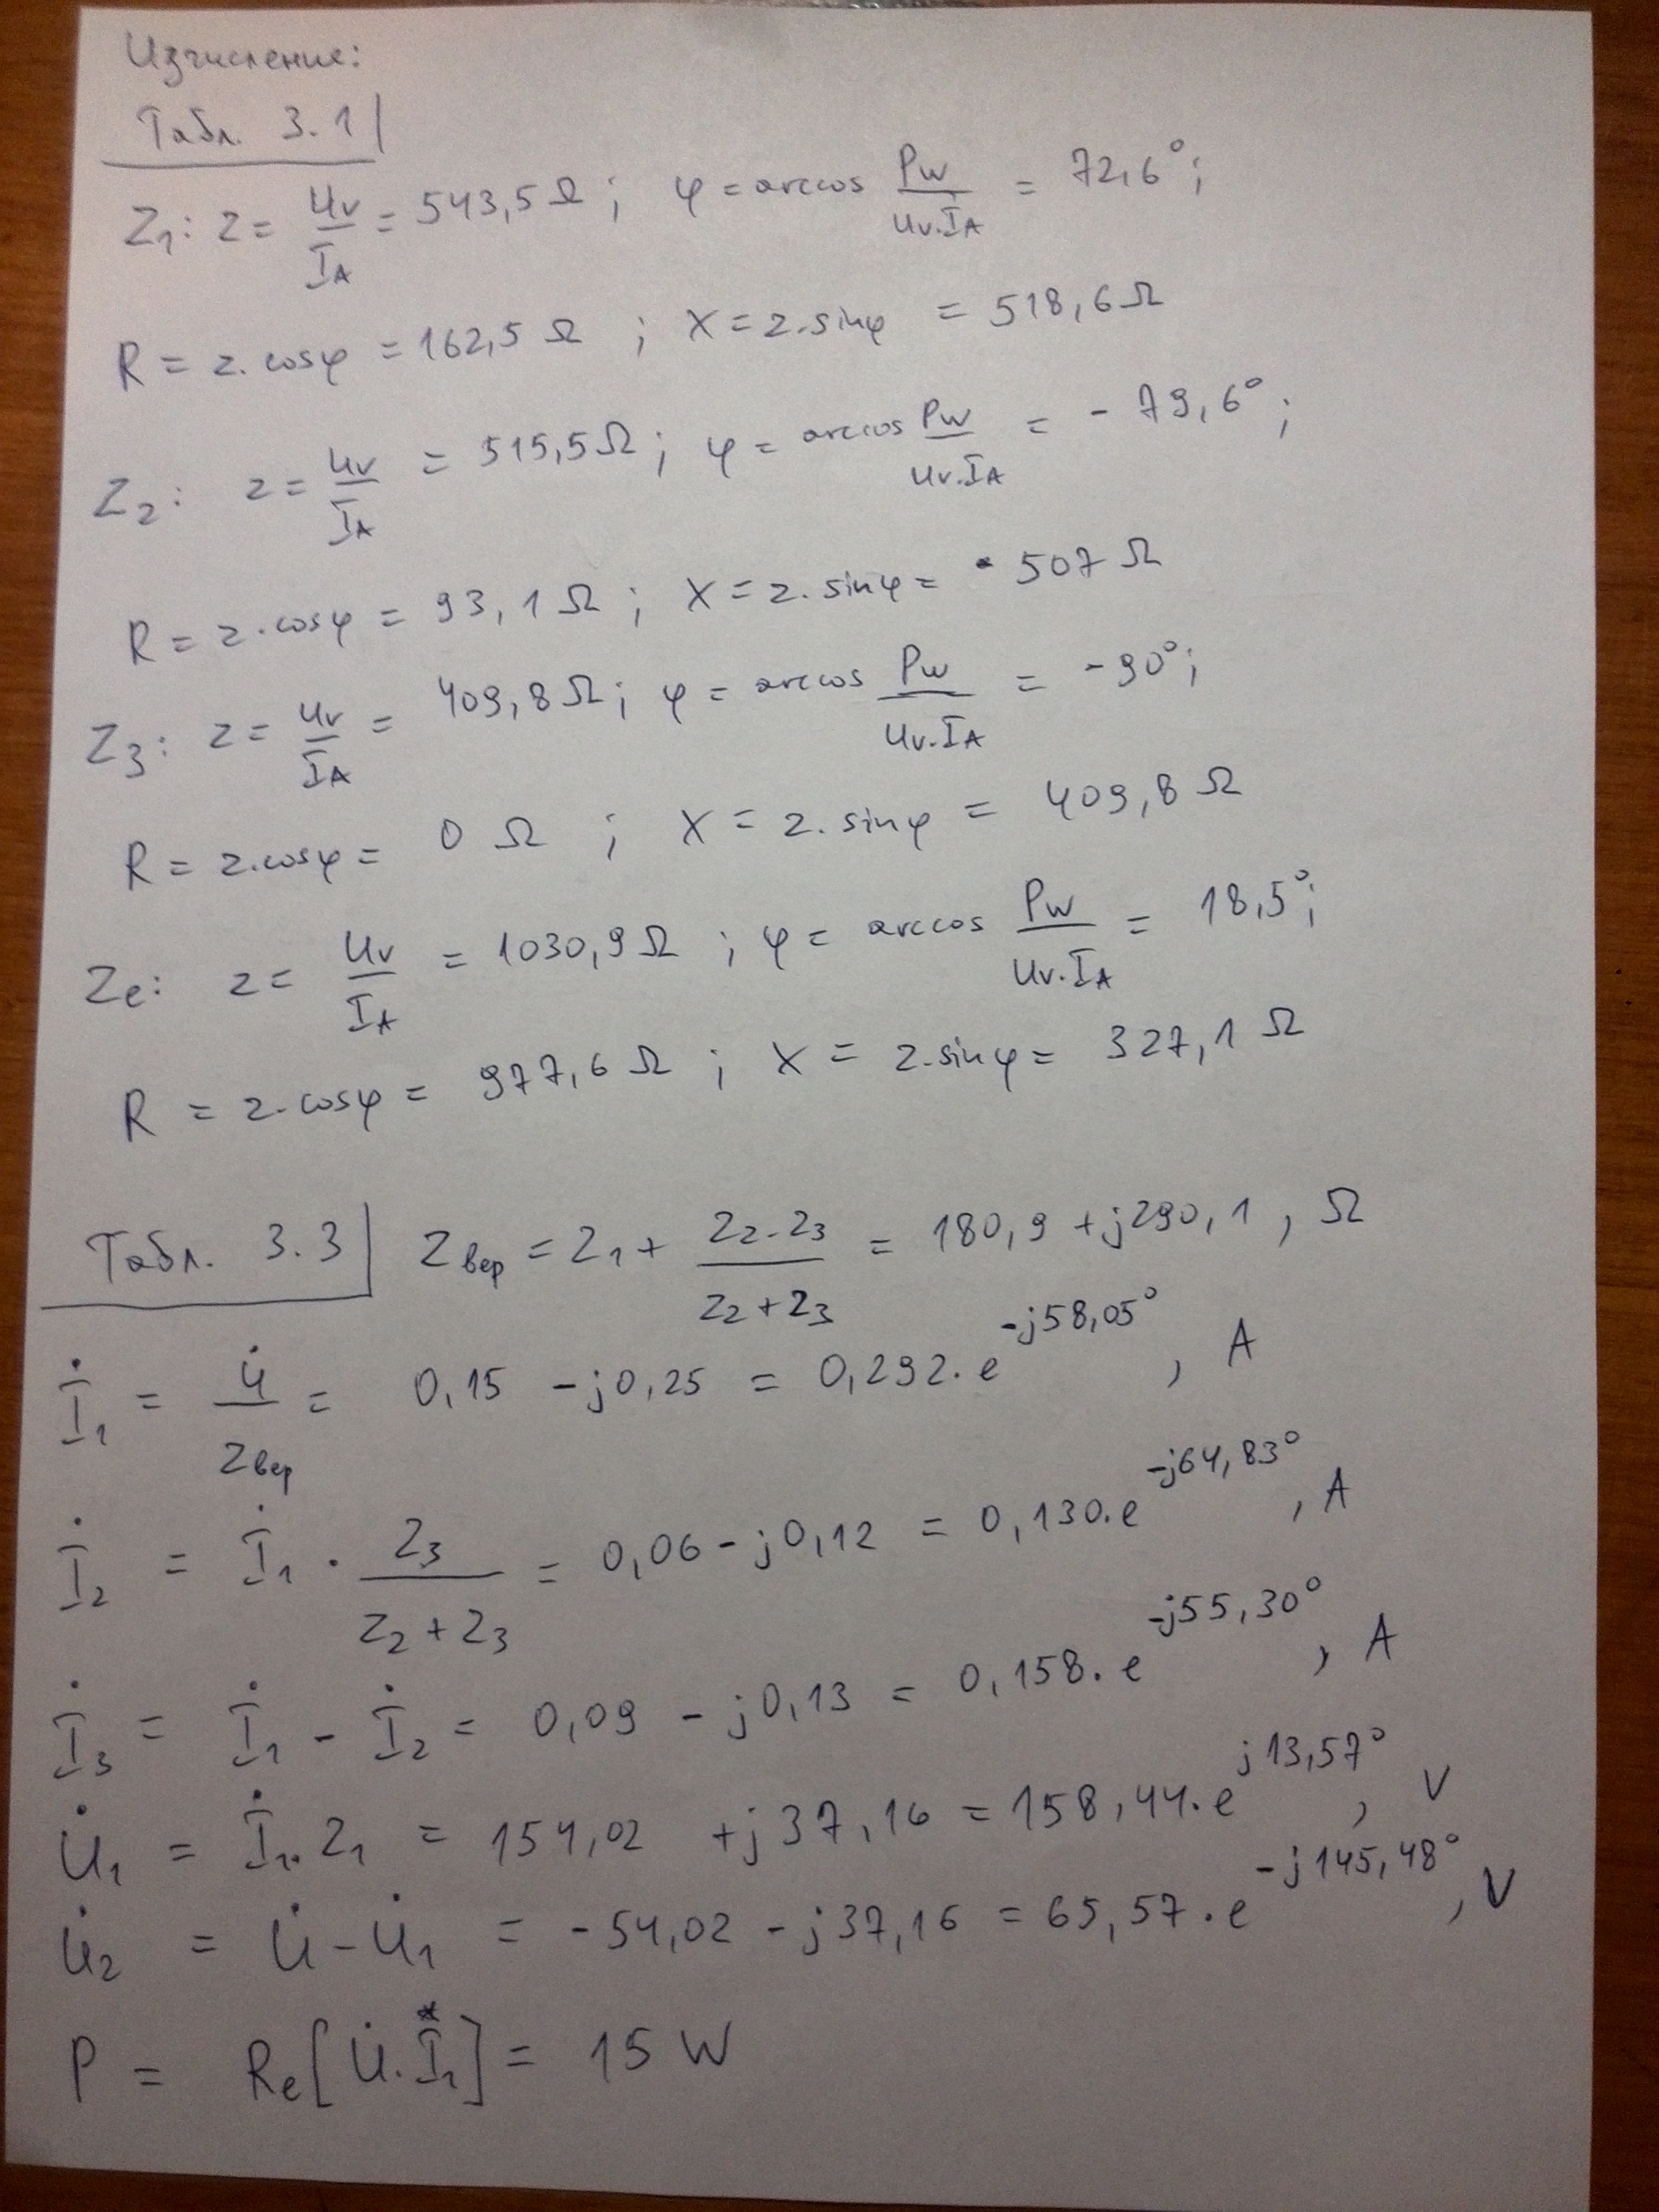 Изчисление:
Табл. 3.1
Z₁: z = Uv/IA = 543,5 Ω ; φ = arccos Pw/(Uv.IA) = 72,6° ;
R = z.cosφ = 162,5 Ω ; X = z.sinφ = 518,6 Ω
Z₂: z = Uv/IA = 515,5 Ω ; φ = arccos Pw/(Uv.IA) = - 79,6° ;
R = z.cosφ = 93,1 Ω ; X = z.sinφ = - 507 Ω
Z₃: z = Uv/IA = 409,8 Ω ; φ = arccos Pw/(Uv.IA) = -90° ;
R = z.cosφ = 0 Ω ; X = z.sinφ = 409,8 Ω
Ze: z = Uv/IA = 1030,9 Ω ; φ = arccos Pw/(Uv.IA) = 18,5° ;
R = z.cosφ = 977,6 Ω ; X = z.sinφ = 327,1 Ω
Табл. 3.3 Zвер = Z₁ + (Z₂.Z₃)/(Z₂+Z₃) = 180,9 + j290,1 , Ω
İ₁ = U̇/Zвер = 0,15 - j0,25 = 0,292.e^(-j58,05°) , A
İ₂ = İ₁ . Z₃/(Z₂+Z₃) = 0,06 - j0,12 = 0,130.e^(-j64,83°) , A
İ₃ = İ₁ - İ₂ = 0,09 - j0,13 = 0,158.e^(-j55,30°) , A
U̇₁ = İ₁.Z₁ = 154,02 + j37,16 = 158,44.e^(j13,57°) , V
U̇₂ = U̇ - U̇₁ = -54,02 - j37,16 = 65,57.e^(-j145,48°) , V
P = Re[U̇.I*₁] = 15 W